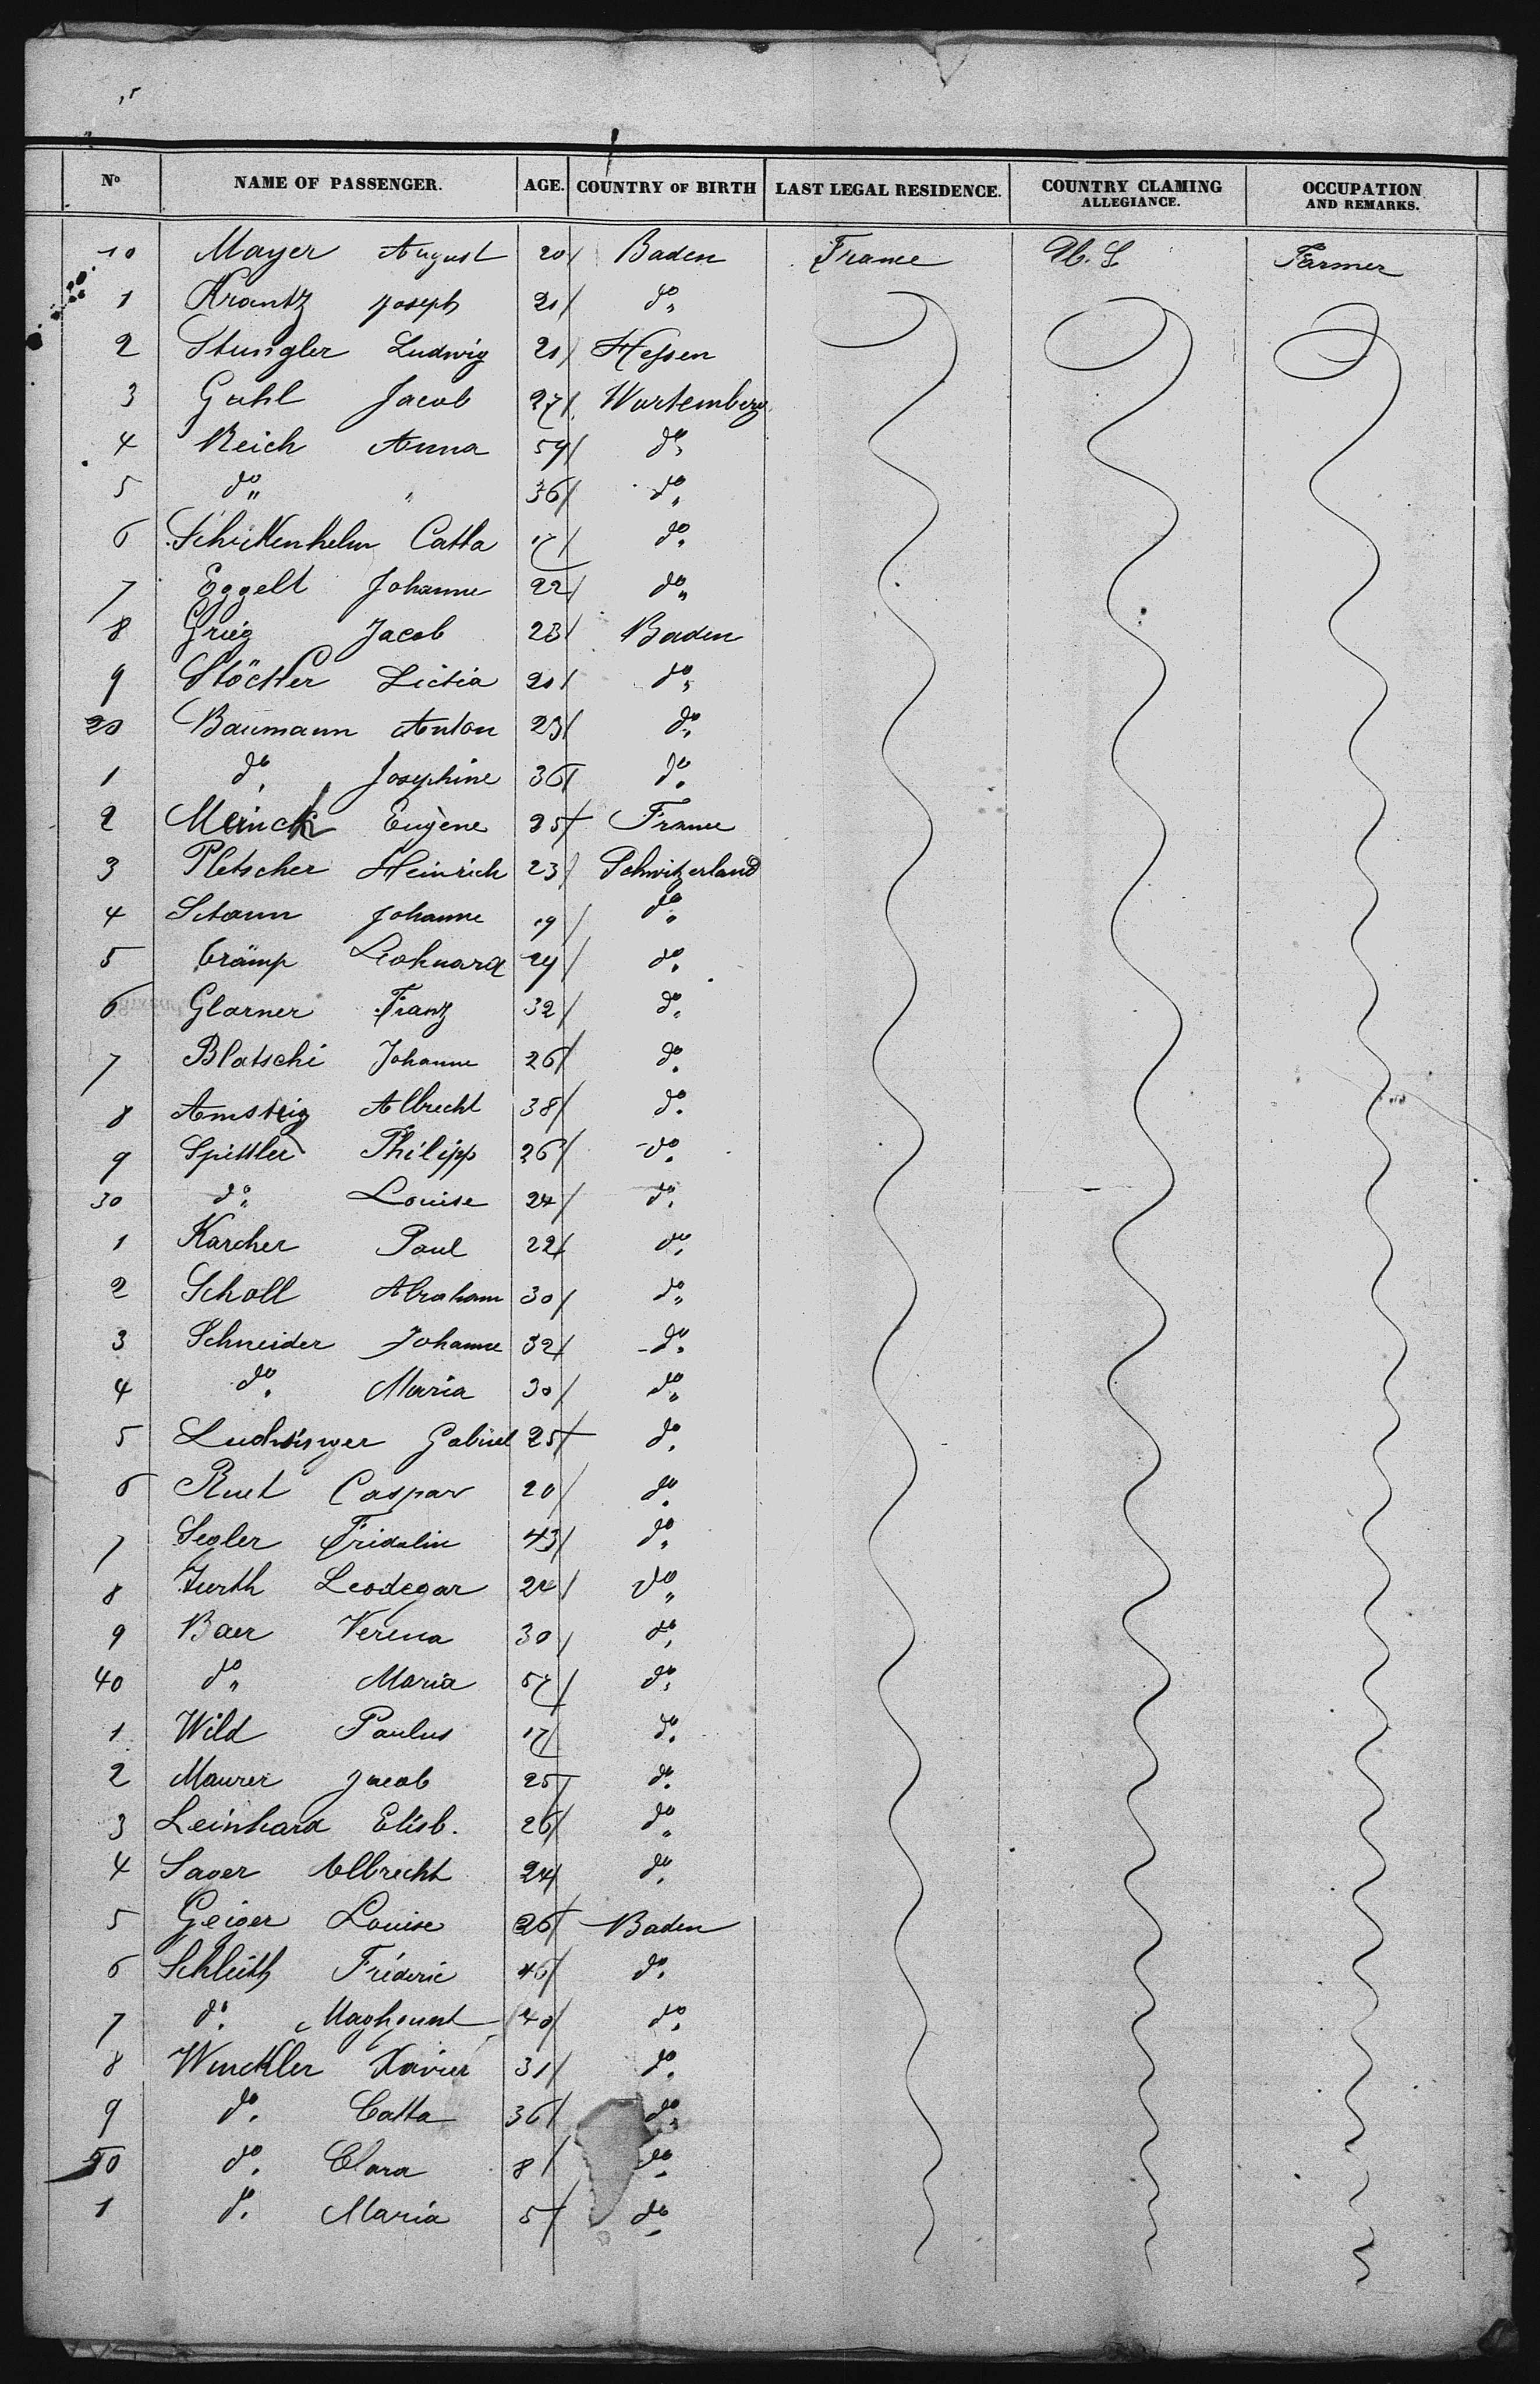 No NAME OF PASSENGER. AGE. COUNTRY OF BIRTH LAST LEGAL RESIDENCE. COUNTRY CLAMING ALLEGIANCE. OCCUPATION AND REMARKS.
10 Mayer August 20 Baden France U. S. Farmer
1 Krantz Joseph 21 do
2 Stungler Ludwig 21 Hessen
3 Guhl Jacob 27 Wurtemberg
4 Reich Anna 59 do
5 do " 36 do
6 Schickenhelm Catta 17 do
7 Eggelt Johanne 22 do
8 Grieg Jacob 23 Baden
9 Stöcker Lictia 21 do
20 Baumann Anton 23 do
1 do Josephine 36 do
2 Meinck Eugène 25 France
3 Pletscher Heinrich 23 Schwitzerland
4 Stamm Johanne 19 do
5 Crämp Leohnard 29 do
6 Glarner Franz 32 do
7 Blatschi Johanne 26 do
8 Amsteig Albrecht 38 do
9 Spittler Philipp 26 do
30 do Louise 24 do
1 Karcher Paul 22 do
2 Scholl Abraham 30 do
3 Schneider Johanne 32 do
4 do Maria 30 do
5 Luchsinger Gabriel 25 do
6 Ruet Caspar 20 do
7 Segler Fridolin 43 do
8 Furth Leodegar 24 do
9 Baer Verena 30 do
40 do Maria 57 do
1 Wild Paulus 17 do
2 Maurer Jacob 25 do
3 Leinhard Elisb. 26 do
4 Sager Albrecht 24 do
5 Geiger Louise 26 Baden
6 Schleith Fréderic 46 do
7 do 40 do
8 Winckler Xavier 31 do
9 do Catta 36 do
50 do Clara 8 do
1 do Maria 5 do